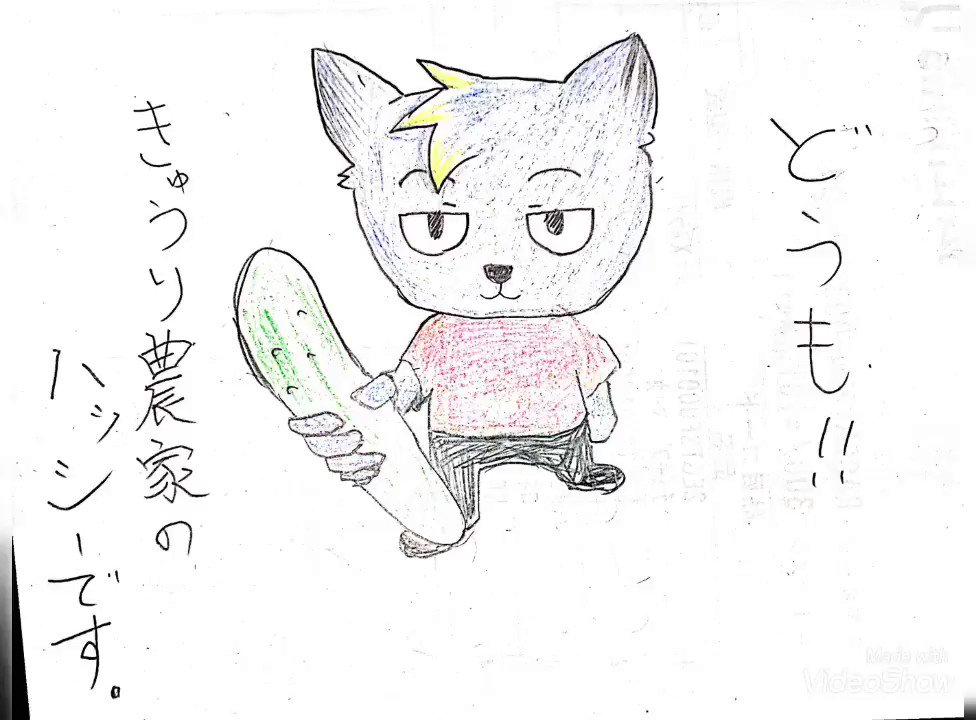 どうも!!
きゅうり農家の
ハッシーです。
Made with
VideoShow